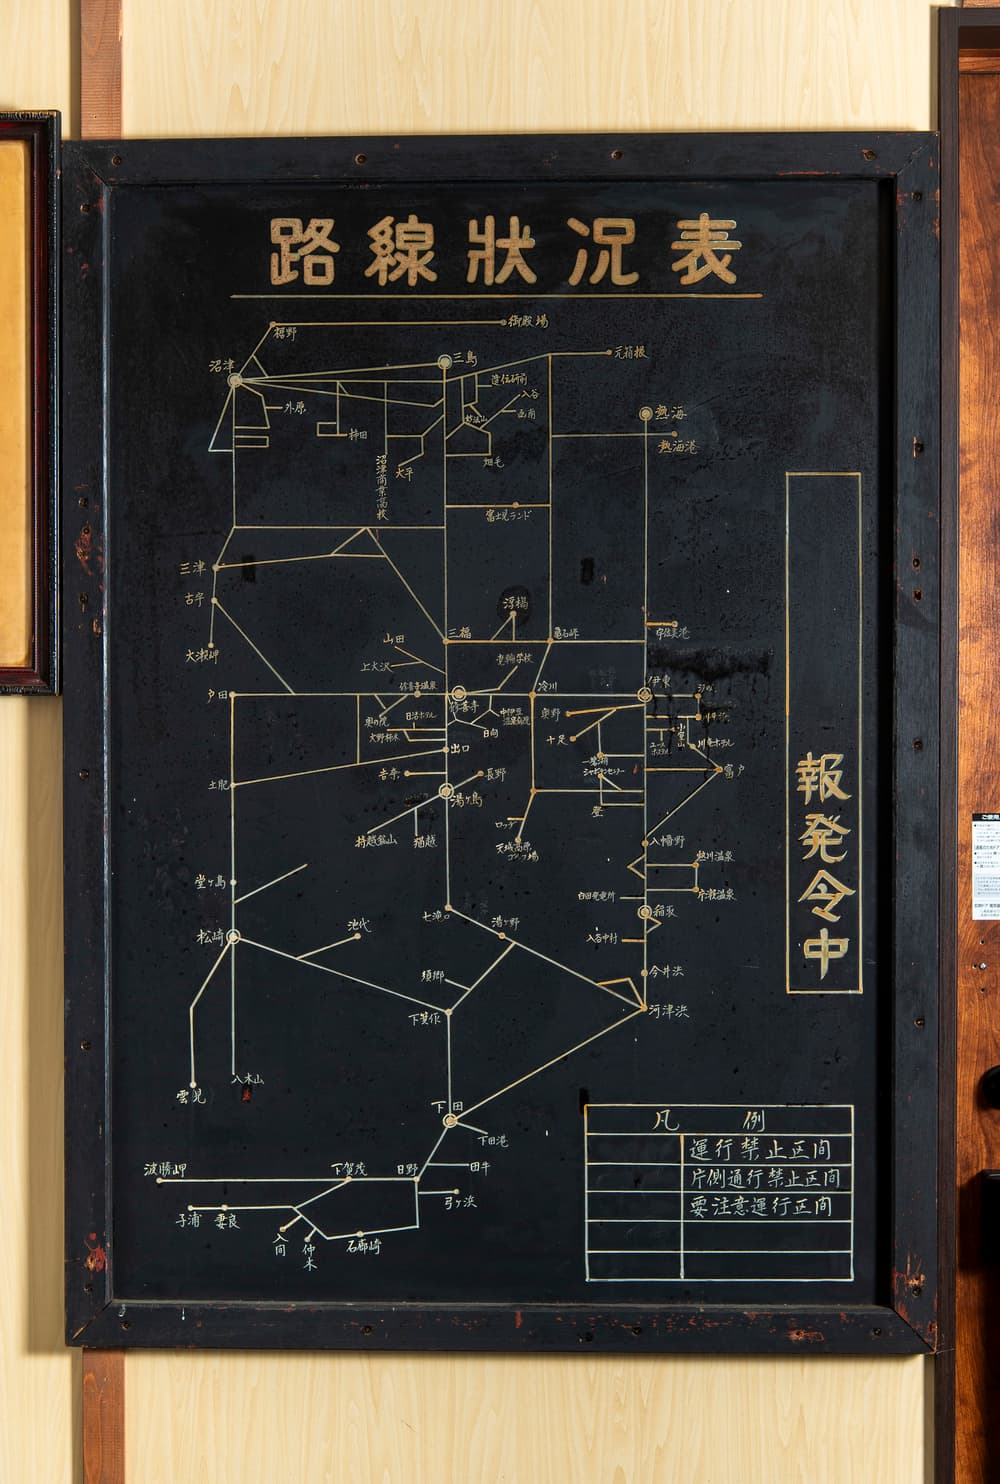 路線狀況表
裾野
御殿場
沼津
三島
元箱根
外原
柿田
入谷
函南
畑毛
大平
沼津商業高校
熱海
熱海港
富士見ランド
三津
古宇
大瀬岬
三福
浮橋
亀石峠
宇佐美港
山田
上大沢
戸田
修善寺温泉
修善寺
冷川
伊東
奥の院
日活ホテル
大野
日向
中伊豆温泉病院
奥野
十足
小室山
ユースホステル
川奈ホテル
出口
一碧湖
シャボテンセンター
富戸
土肥
吉奈
長野
湯ヶ島
登
持越鉱山
猫越
ロッヂ
天城高原ゴルフ場
八幡野
熱川温泉
片瀬温泉
白田発電所
稲取
堂ヶ島
七滝口
湯ヶ野
入谷中村
松崎
池代
須郷
今井浜
下箕作
河津浜
雲見
八木山
下田
下田港
波勝岬
下賀茂
日野
田牛
弓ヶ浜
子浦
妻良
入間
仲木
石廊崎
報発令中
凡例
運行禁止区间
片側通行禁止区间
要注意運行区间